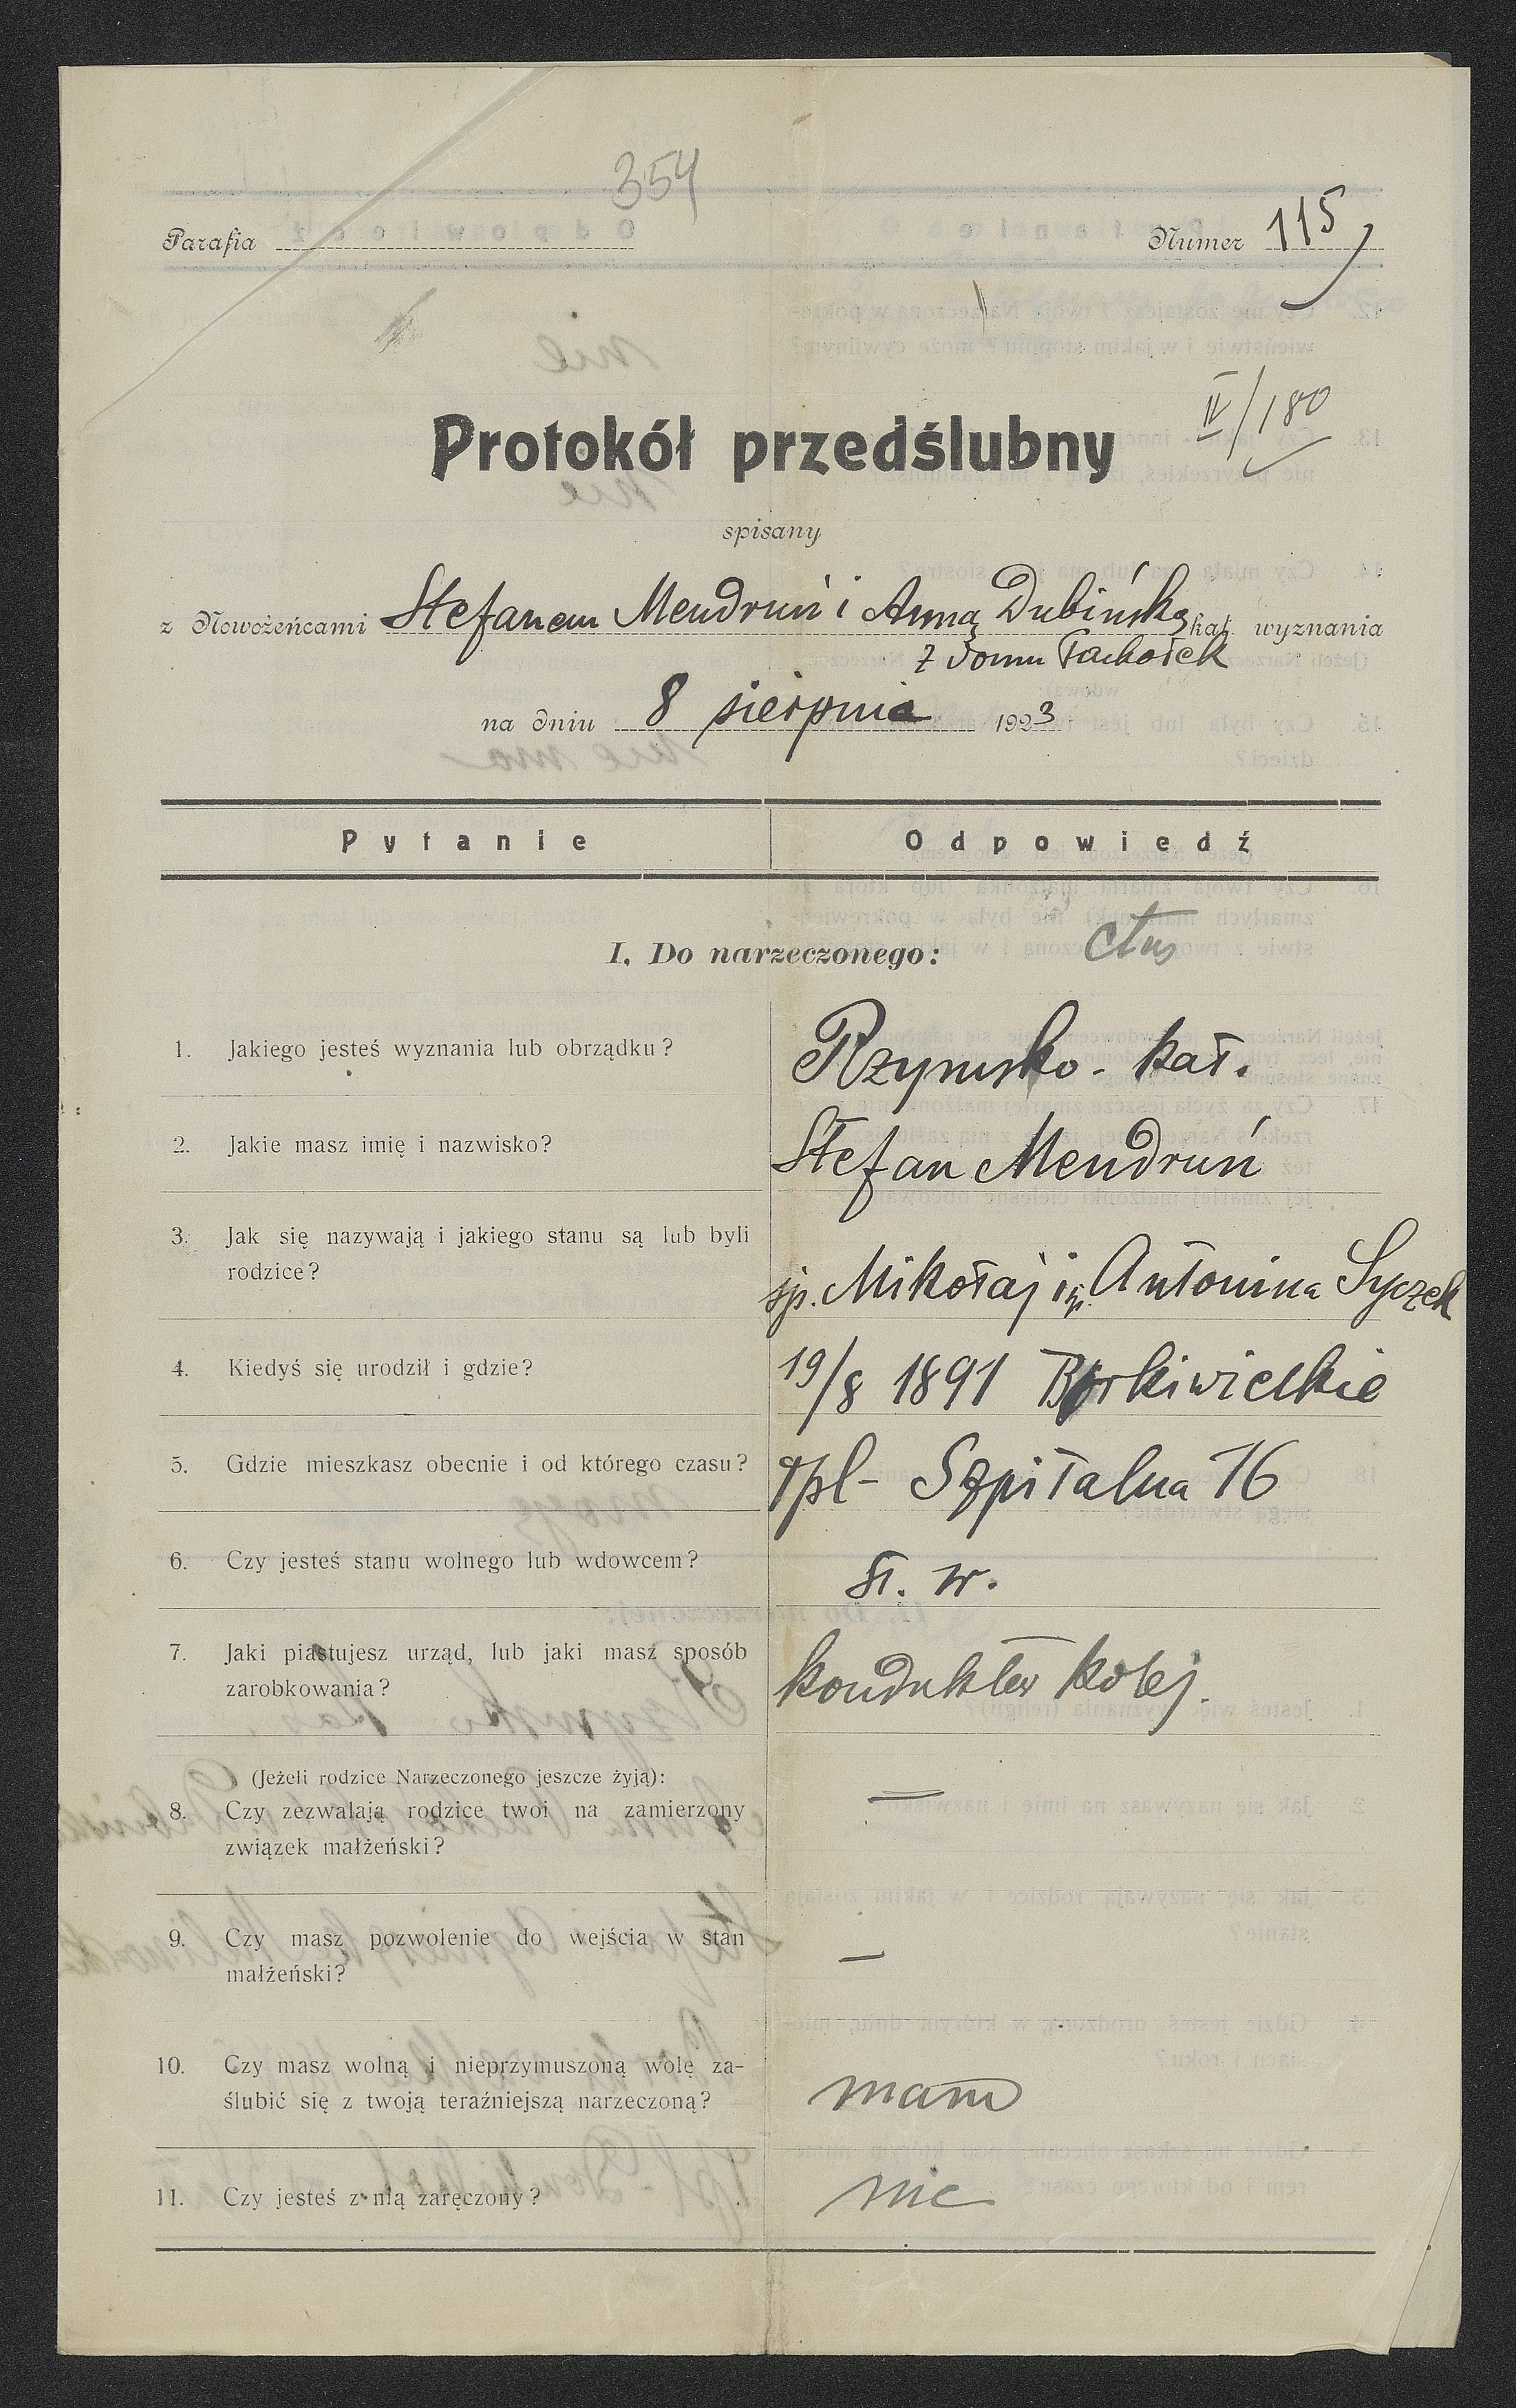 354
Parafia
Numer 115
II/180
Protokół przedślubny
spisany
z Nowożeńcami Stefanem Mendruń i Anną Dubińską kat. wyznania
z domu Pachołek
na dniu 8 sierpnia 1923
Pytanie Odpowiedź
I. Do narzeczonego:
1. Jakiego jesteś wyznania lub obrządku? Rzymsko-kat.
2. Jakie masz imię i nazwisko? Stefan Mendruń
3. Jak się nazywają i jakiego stanu są lub byli
rodzice? śp. Mikołaj i śp. Antonina Syczek
4. Kiedyś się urodził i gdzie? 19/8 1891 Borkiwielkie
5. Gdzie mieszkasz obecnie i od którego czasu? Tpl- Szpitalna 16
6. Czy jesteś stanu wolnego lub wdowcem? st. w.
7. Jaki piastujesz urząd, lub jaki masz sposób
zarobkowania? konduktor kolej.
(Jeżeli rodzice Narzeczonego jeszcze żyją):
8. Czy zezwalają rodzice twoi na zamierzony —
związek małżeński?
9. Czy masz pozwolenie do wejścia w stan —
małżeński?
10. Czy masz wolną i nieprzymuszoną wolę za-
ślubić się z twoją teraźniejszą narzeczoną? mam
11. Czy jesteś z nią zaręczony? nie